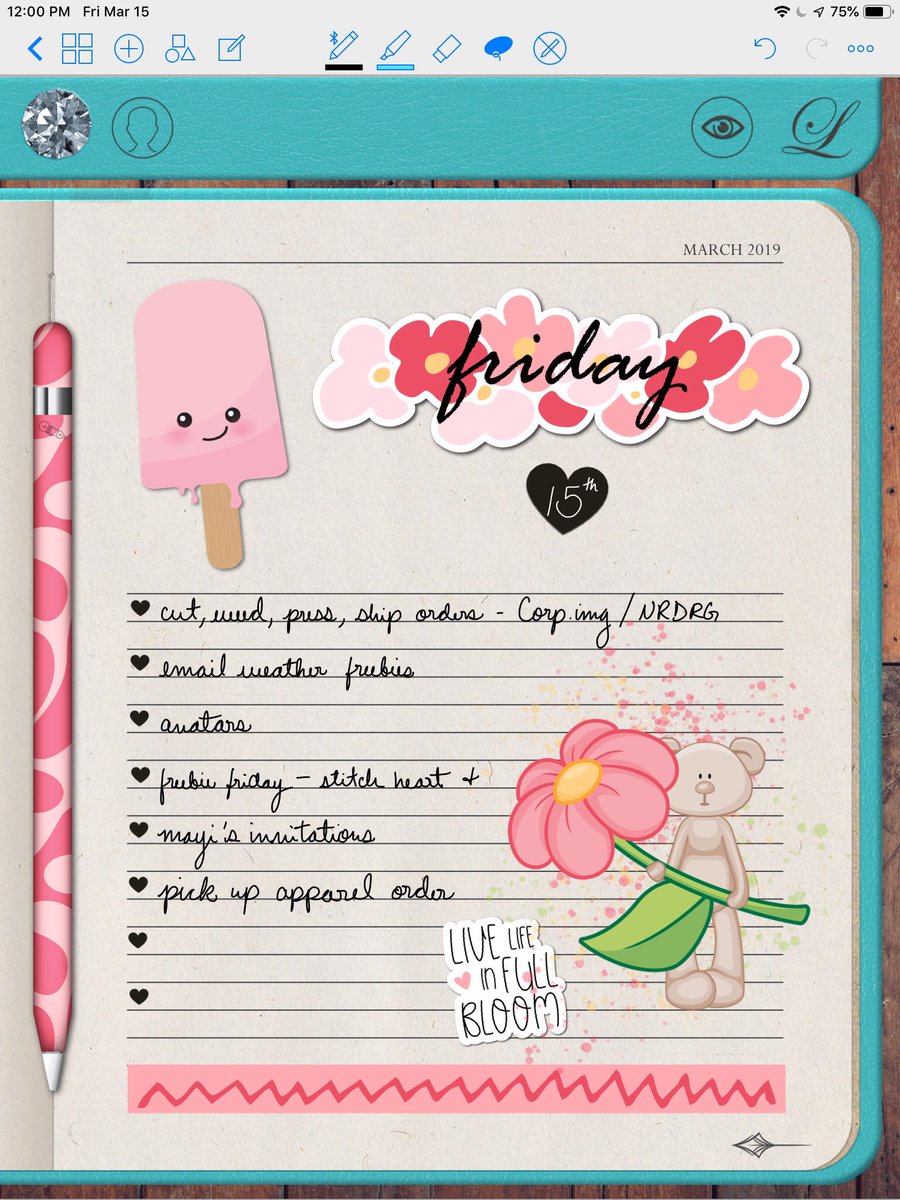 12:00 PM Fri Mar 15 75%
L
MARCH 2019
friday
15th
cut, weed, press, ship orders - Corp.img / NRDRG
email weather freebies
avatars
freebie friday - stitch heart +
mayi's invitations
pick up apparel order
LIVE LIFE
in FULL
BLOOM